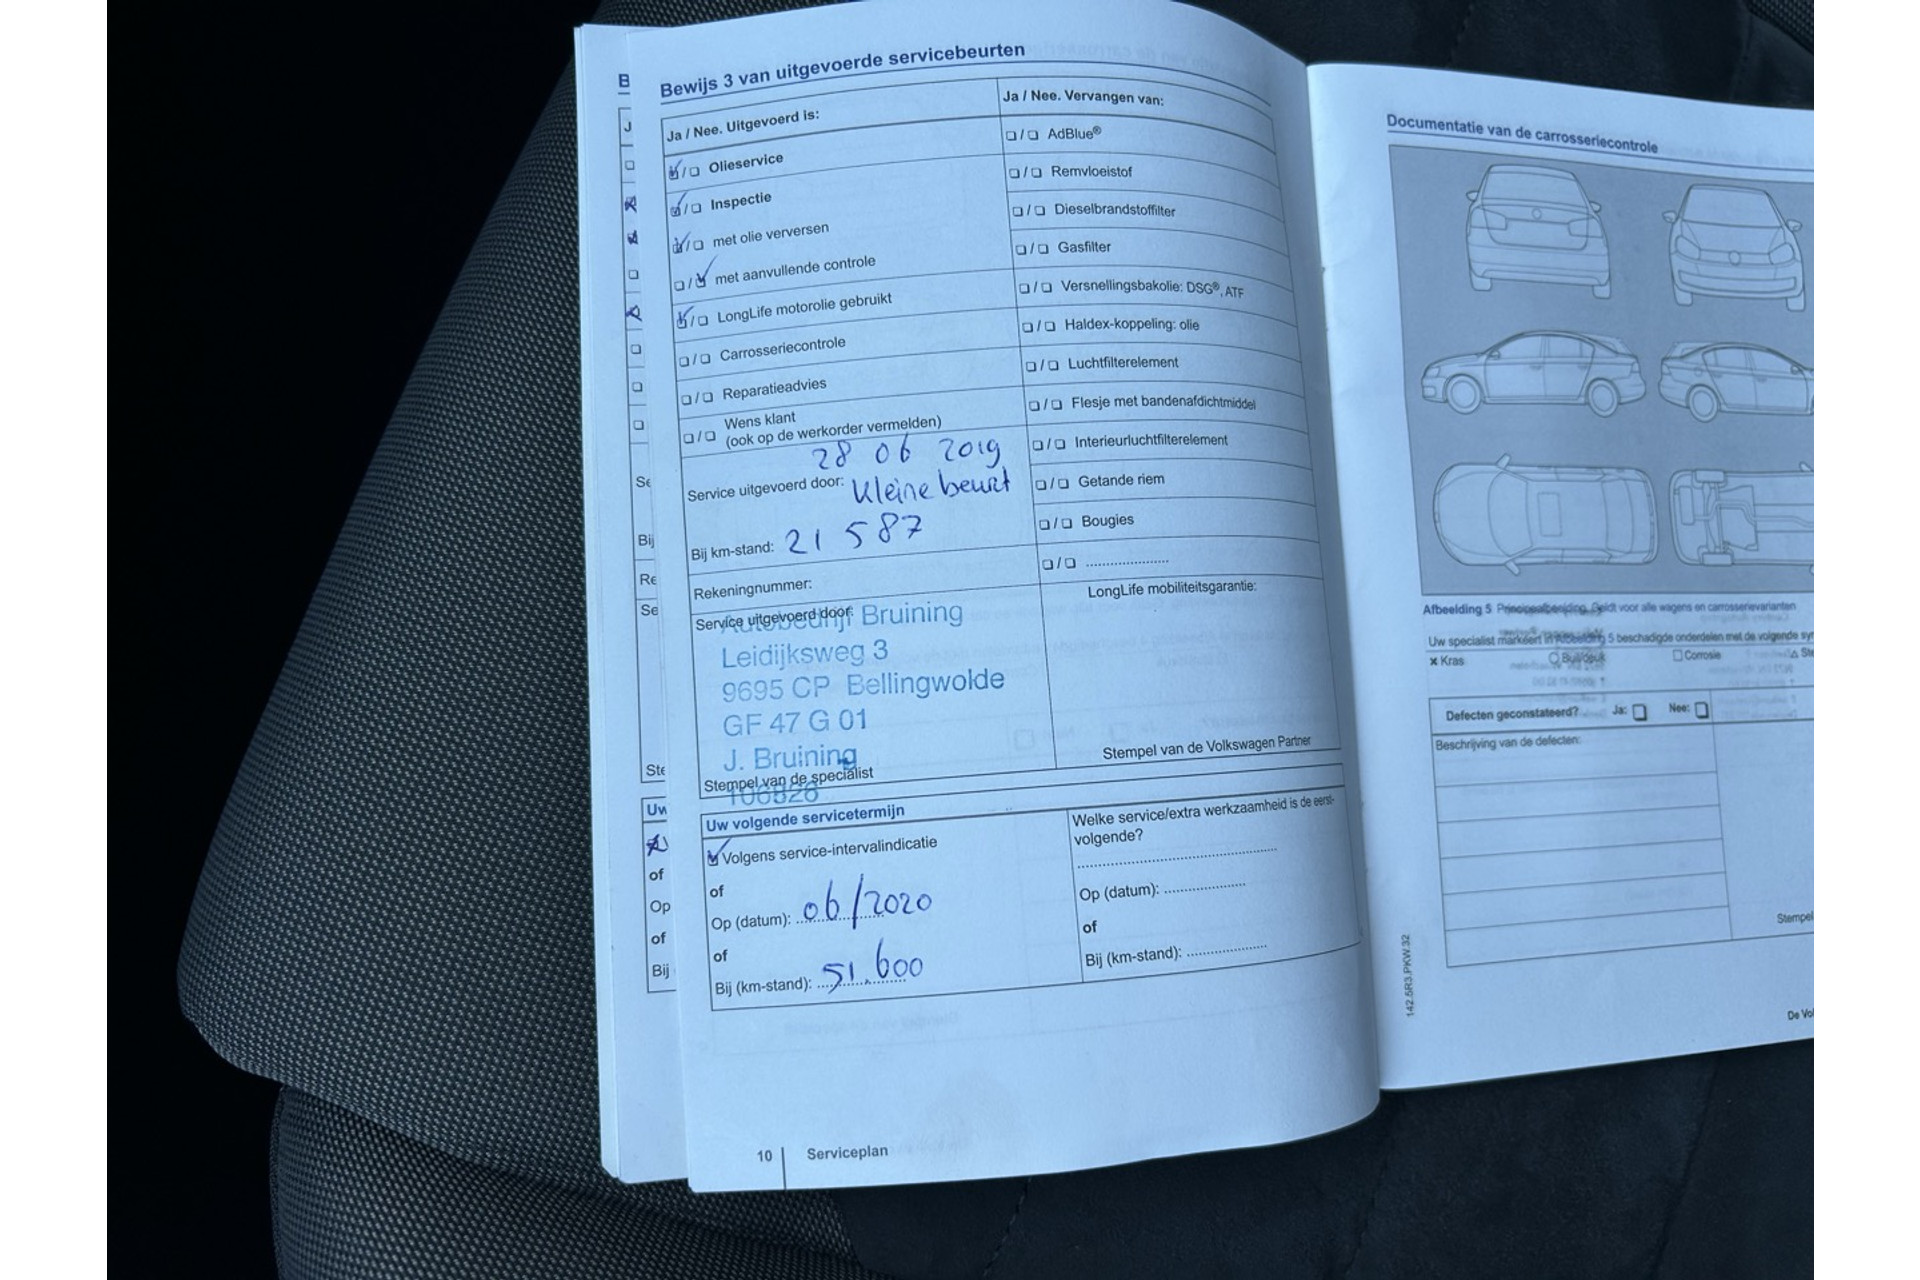 Bewijs 3 van uitgevoerde servicebeurten
Ja / Nee. Uitgevoerd is:
Olieservice
Inspectie
met olie verversen
met aanvullende controle
LongLife motorolie gebruikt
Carrosseriecontrole
Reparatieadvies
Wens klant
(ook op de werkorder vermelden)
28 06 2019
Service uitgevoerd door: Kleine beurt
Bij km-stand: 21 587
Rekeningnummer:
Service uitgevoerd door:
Autobedrijf Bruining
Leidijksweg 3
9695 CP Bellingwolde
GF 47 G 01
J. Bruining
Stempel van de specialist
106826
Ja / Nee. Vervangen van:
AdBlue®
Remvloeistof
Dieselbrandstoffilter
Gasfilter
Versnellingsbakolie: DSG®, ATF
Haldex-koppeling: olie
Luchtfilterelement
Flesje met bandenafdichtmiddel
Interieurluchtfilterelement
Getande riem
Bougies
LongLife mobiliteitsgarantie:
Stempel van de Volkswagen Partner
Uw volgende servicetermijn
Volgens service-intervalindicatie
of
Op (datum): 06/2020
of
Bij (km-stand): 51.600
Welke service/extra werkzaamheid is de eerst-
volgende?
Op (datum):
of
Bij (km-stand):
10 Serviceplan
B
J
Se
Bij
Re
Se
Ste
Uw
of
Op
of
Bij
Documentatie van de carrosseriecontrole
Afbeelding 5 Principeafbeelding. Geldt voor alle wagens en carrosserievarianten
Uw specialist markeert in Afbeelding 5 beschadigde onderdelen met de volgende sy
Kras
Buil/deuk
Corrosie
Ste
Defecten geconstateerd? Ja: Nee:
Beschrijving van de defecten:
Stempel
142.5R3.PKW.32
De Vol